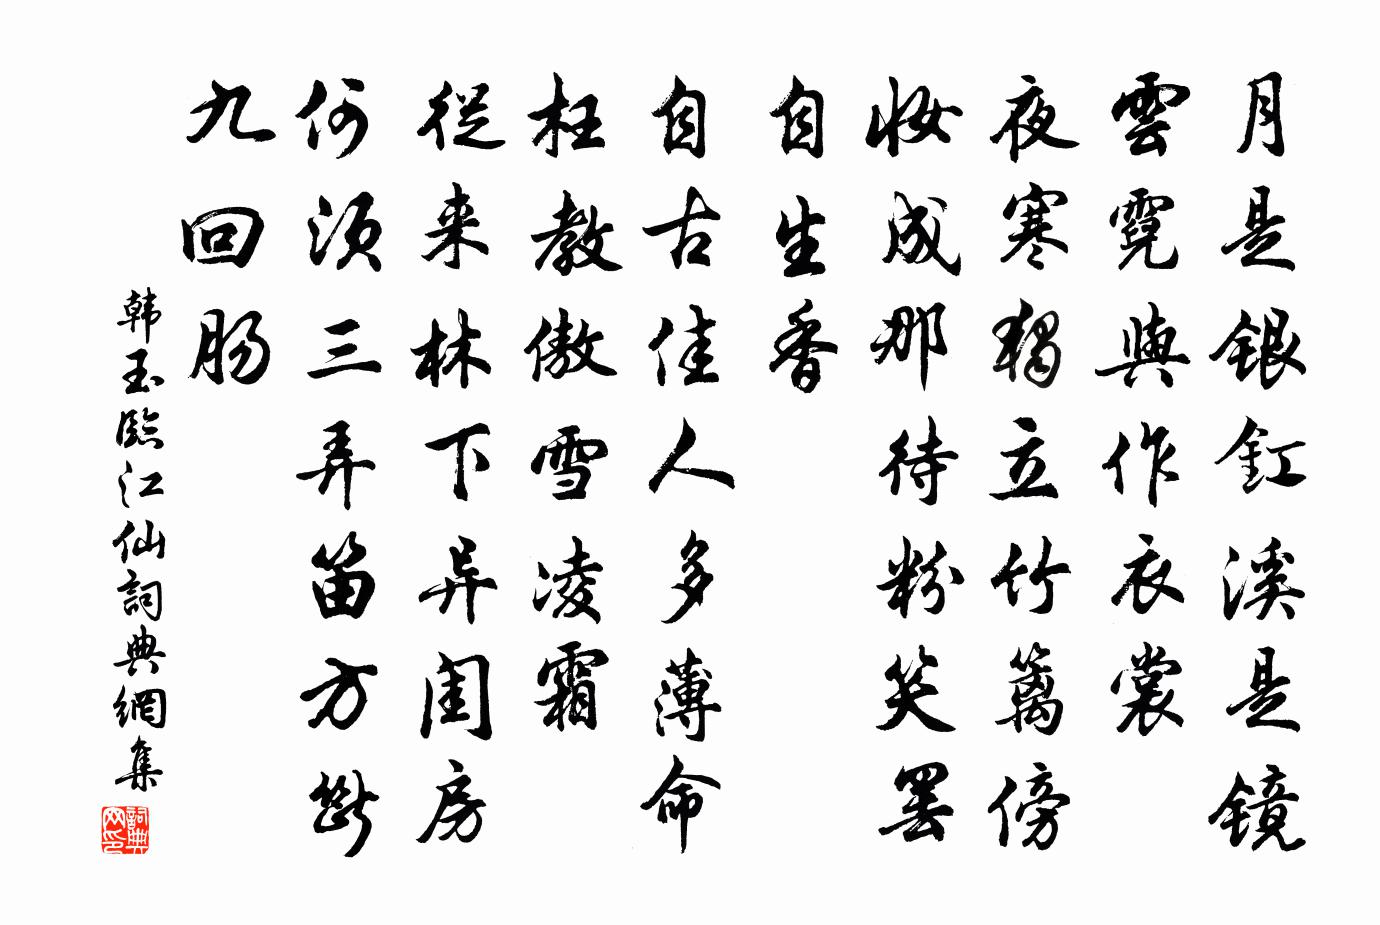 月是銀釭溪是镜
雲霓與作衣裳
夜寒獨立竹篱傍
妝成那待粉笑罢
自生香
自古佳人多薄命
枉教傲雪凌霜
從来林下异闺房
何须三弄笛方斷
九回肠
韩玉臨江仙詞典網集
詞典网印